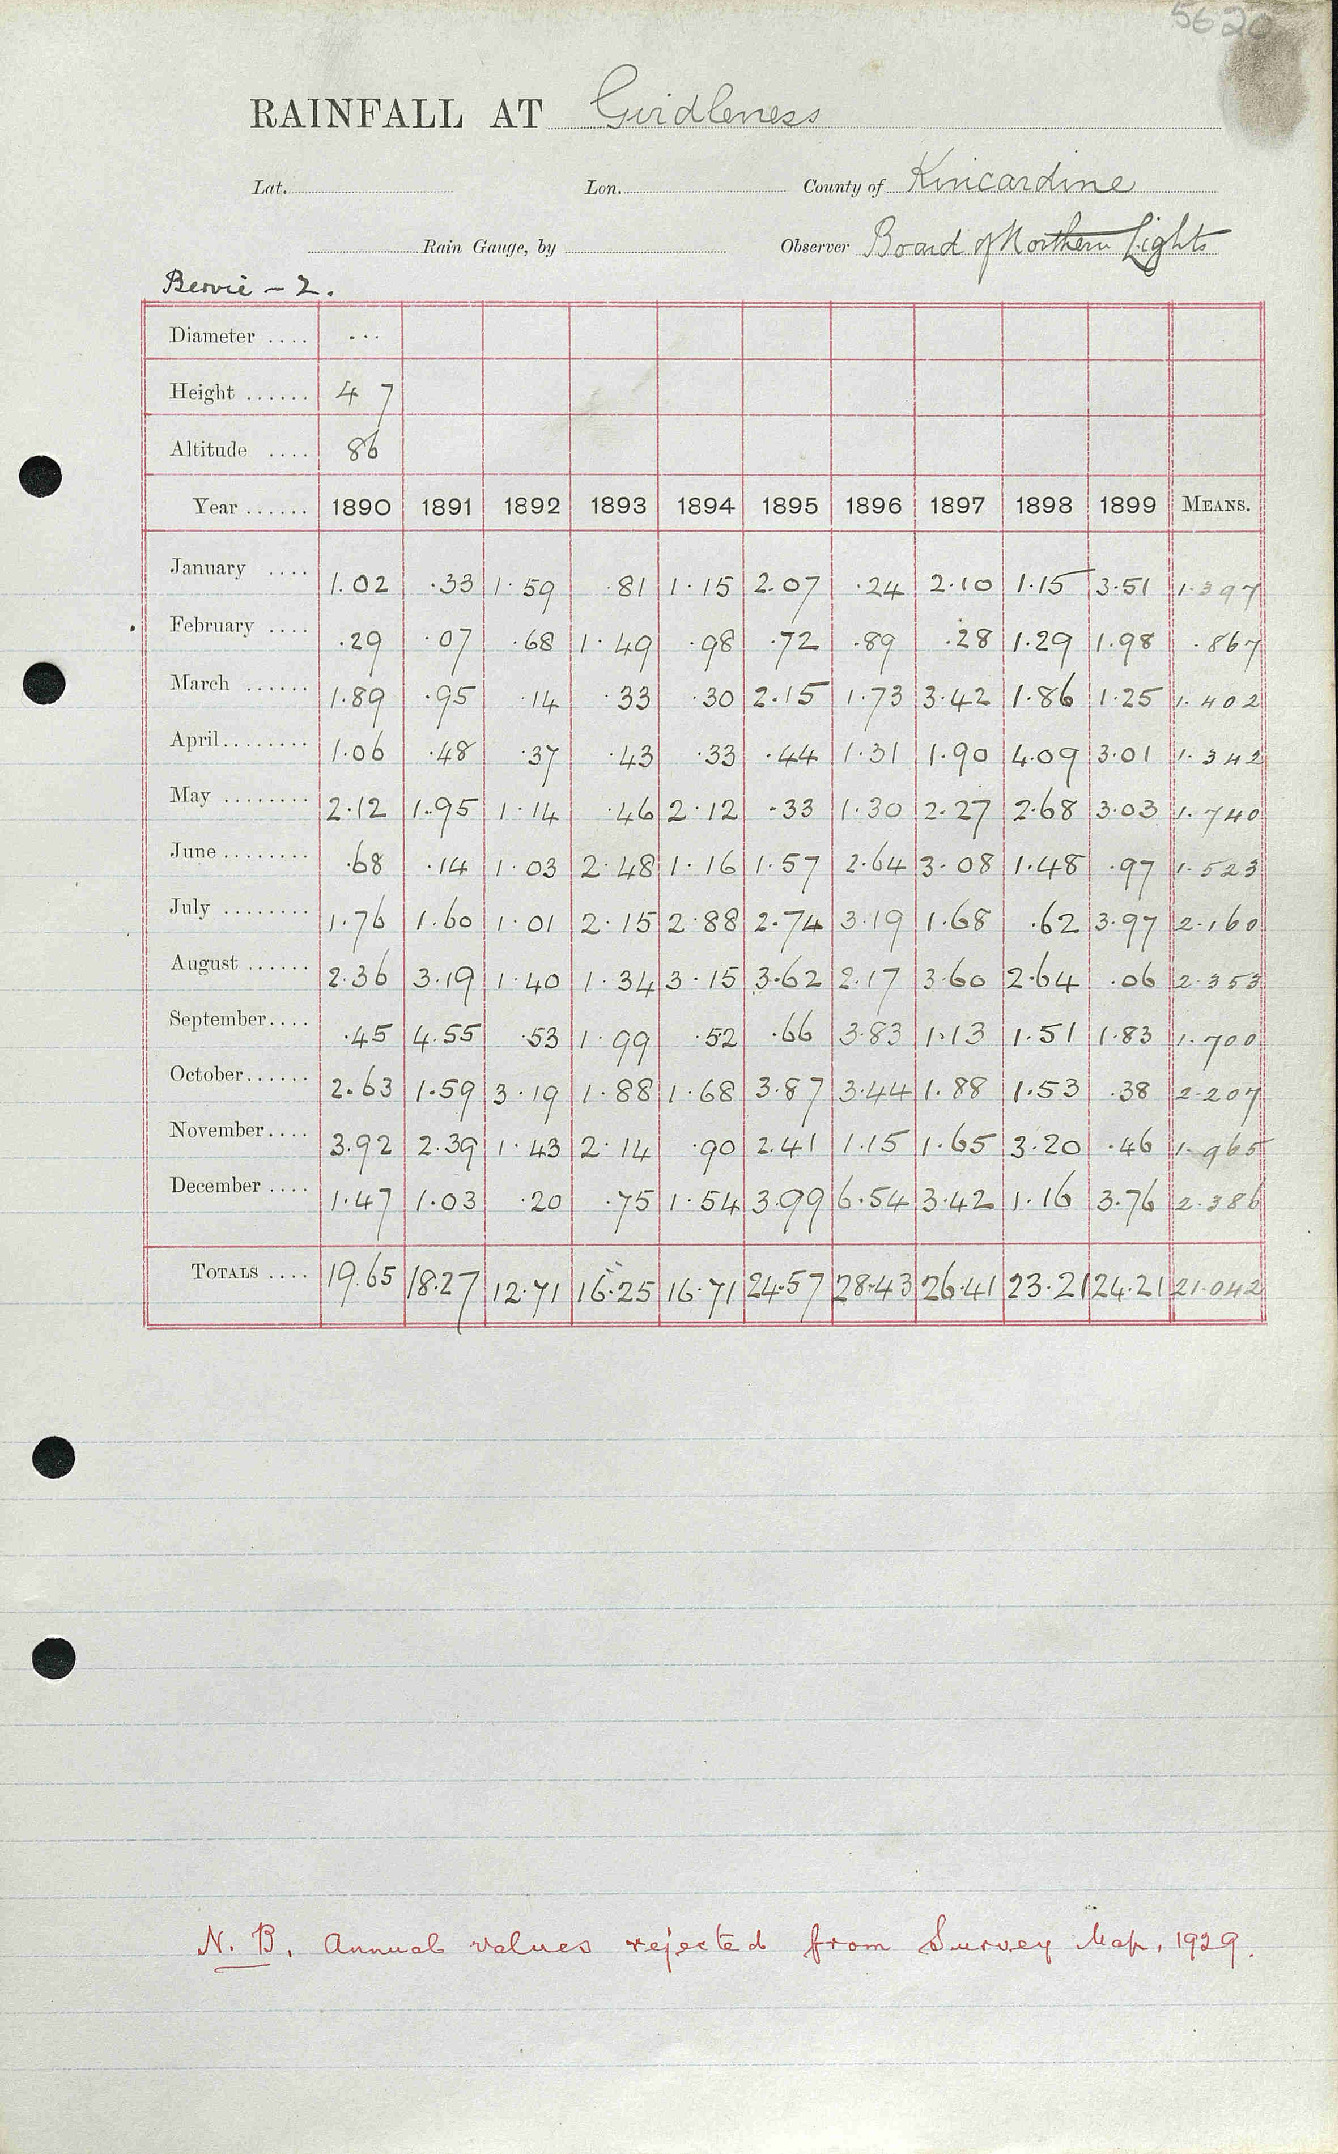 5620
RAINFALL AT Girdleness
Lat. Lon. County of Kincardine
Rain Gauge, by Observer Board of Northern Lights
Bervie - 2.
Diameter .... ...
Height ...... 4 7
Altitude .... 86
Year ...... 1890 1891 1892 1893 1894 1895 1896 1897 1898 1899 MEANS.
January .... 1.02 .33 1.59 .81 1.15 2.07 .24 2.10 1.15 3.51 1.397
February .... .29 .07 .68 1.49 .98 .72 .89 .28 1.29 1.98 .867
March ...... 1.89 .95 .14 .33 .30 2.15 1.73 3.42 1.86 1.25 1.402
April........ 1.06 .48 .37 .43 .33 .44 1.31 1.90 4.09 3.01 1.342
May ........ 2.12 1.95 1.14 .46 2.12 .33 1.30 2.27 2.68 3.03 1.740
June ........ .68 .14 1.03 2.48 1.16 1.57 2.64 3.08 1.48 .97 1.523
July ........ 1.76 1.60 1.01 2.15 2.88 2.74 3.19 1.68 .62 3.97 2.160
August ...... 2.36 3.19 1.40 1.34 3.15 3.62 2.17 3.60 2.64 .06 2.353
September.... .45 4.55 .53 1.99 .52 .66 3.83 1.13 1.51 1.83 1.700
October...... 2.63 1.59 3.19 1.88 1.68 3.87 3.44 1.88 1.53 .38 2.207
November.... 3.92 2.39 1.43 2.14 .90 2.41 1.15 1.65 3.20 .46 1.965
December .... 1.47 1.03 .20 .75 1.54 3.99 6.54 3.42 1.16 3.76 2.386
TOTALS .... 19.65 18.27 12.71 16.25 16.71 24.57 28.43 26.41 23.21 24.21 21.042
N. B. Annual values rejected from Survey Map, 1929.